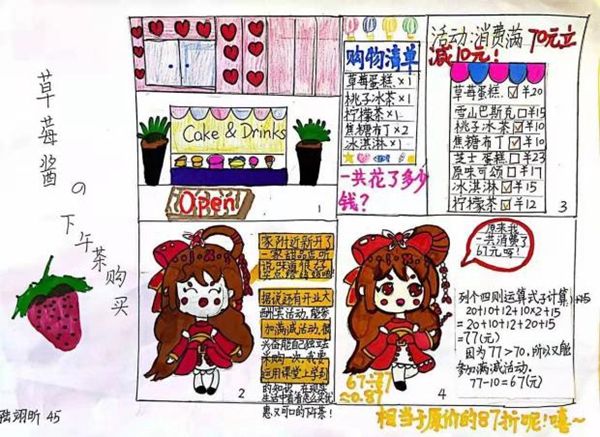 草莓酱の下午茶购买
Cake & Drinks
Open
1
购物清单
草莓蛋糕 × 1
桃子冰茶 × 1
柠檬茶 × 1
焦糖布丁 × 2
冰淇淋 × 1
一共花了多少
钱?
活动:消费满70元立
减10元!
草莓蛋糕 ☑ ¥20
雪山巴斯克 □ ¥15
桃子冰茶 ☑ ¥10
焦糖布丁 ☑ ¥10
芝士蛋糕 □ ¥23
原味可颂 □ ¥17
冰淇淋 ☑ ¥15
柠檬茶 ☑ ¥12
3
家附近新开了
一家甜品店
据说还有开业大
酬宾活动,能参
加满减活动,很
兴奋能自己独立去
采购一次,我要
运用课堂上学到
的知识,在现实
生活中
惠又可口的下午茶!
2
原来我
一共消费了
67元呀!
列个四则运算式子计算:
20+10+12+10×2+15
=20+10+12+20+15
=77(元)
因为77>70,所以又能
参加满减活动。
77-10=67(元)
67÷77
≈0.87
4
相当于原价的87折呢!嘻~
45